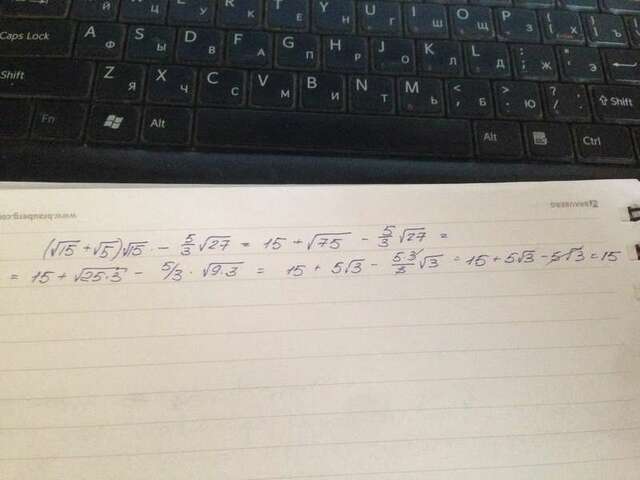 Caps Lock A Ф S Ы D В F А G П H Р J О K Л L Д : ; Ж " ' Э
Shift Z Я X Ч C С V М B И N Т M Ь < , Б > . Ю ? / Shift
Fn Alt Alt Ctrl
www.brauberg.com BRAUBERG
(√15 + √5)√15 · − 5/3 √27 = 15 + √75 − 5/3 √27 =
= 15 + √25·3 − 5/3 · √9·3 = 15 + 5√3 − 5·3/3 √3 = 15 + 5√3 − 5√3 = 15